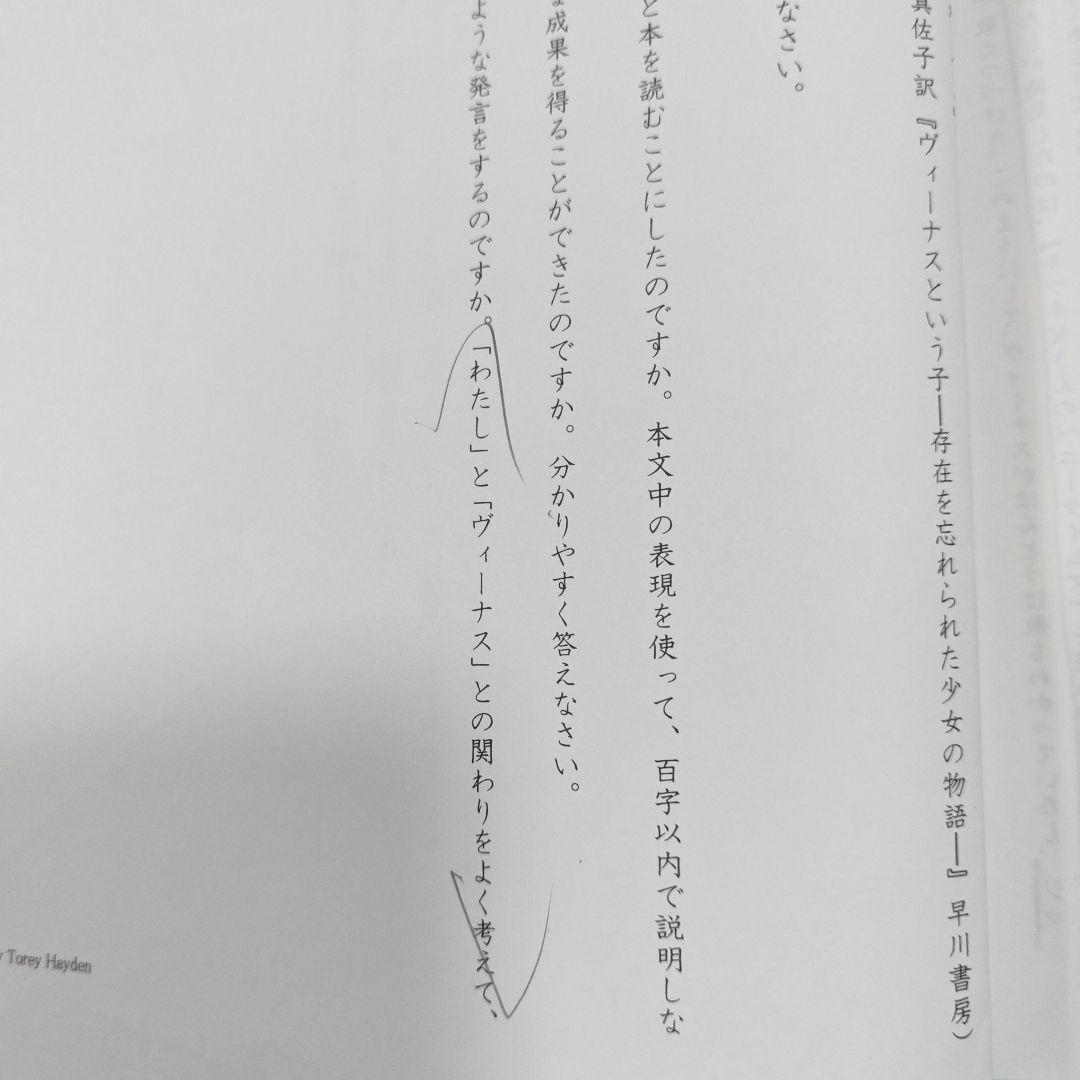 真佐子訳『ヴィーナスという子―存在を忘れられた少女の物語―』早川書房）
なさい。
と本を読むことにしたのですか。本文中の表現を使って、百字以内で説明しな
成果を得ることができたのですか。分かりやすく答えなさい。
ような発言をするのですか。「わたし」と「ヴィーナス」との関わりをよく考えて、
Torey Hayden